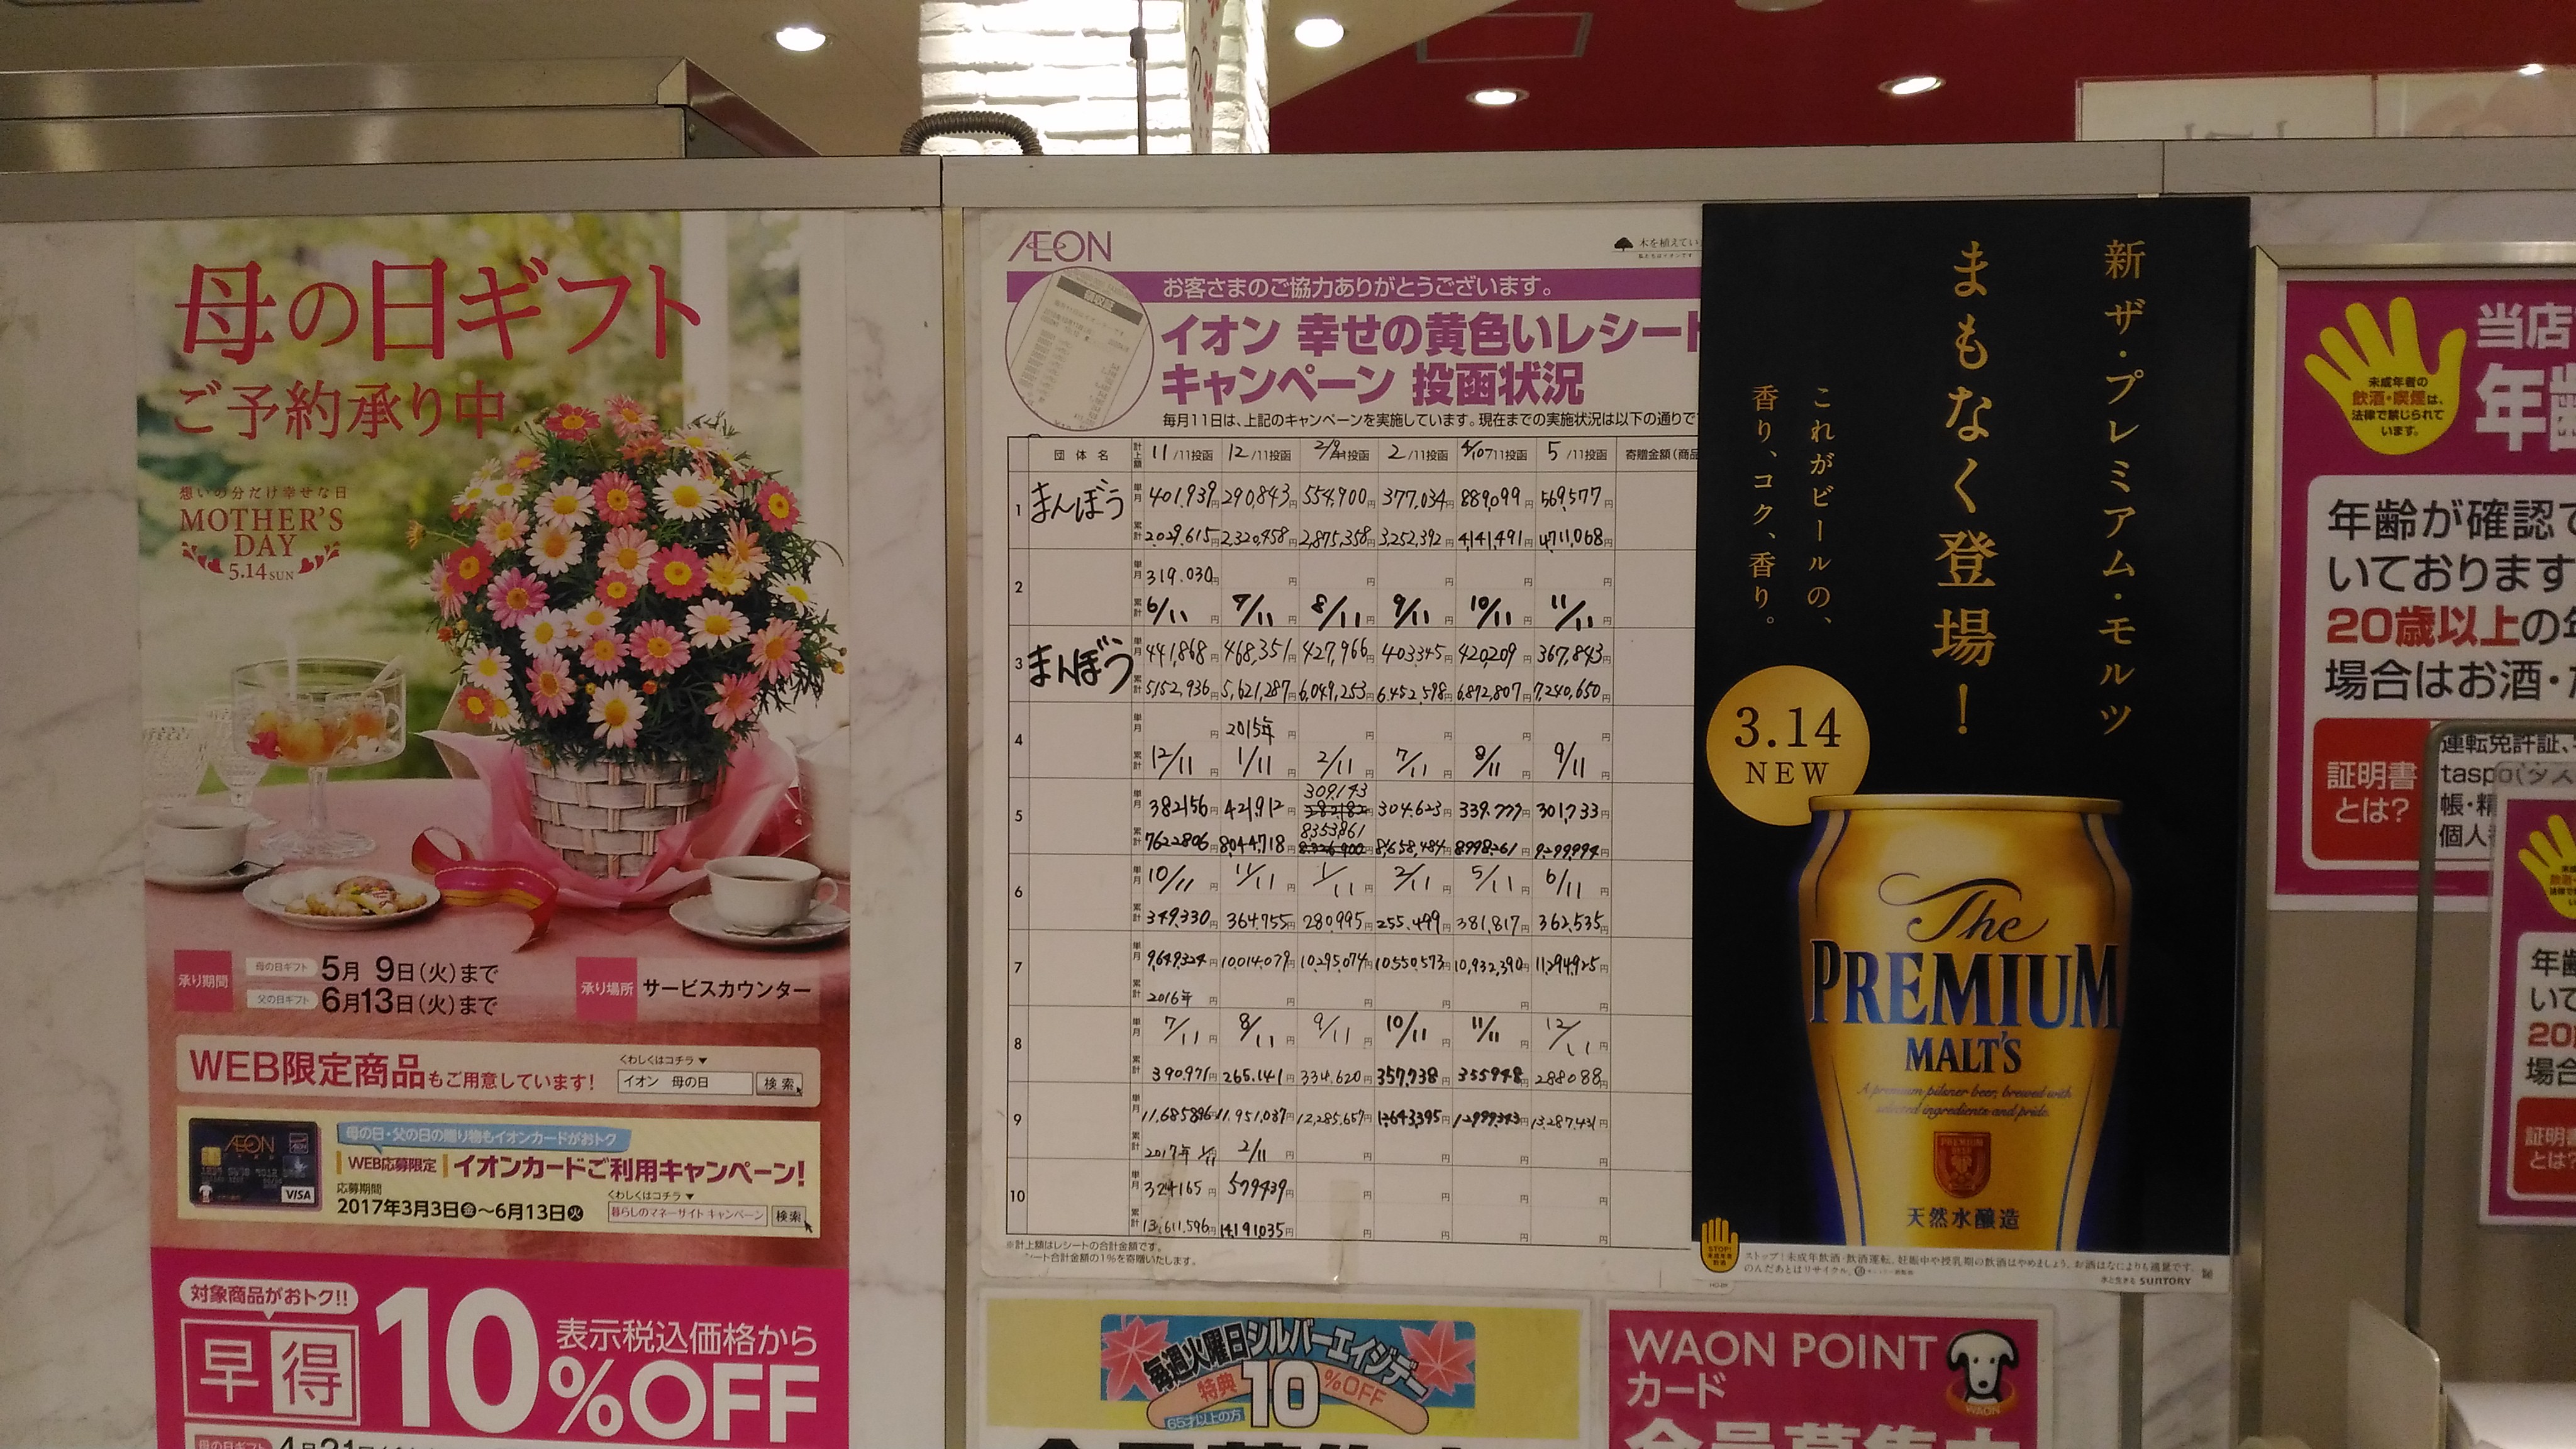 母の日ギフト
ご予約承り中
想いの分だけ幸せな日
MOTHER'S
DAY
5.14 SUN
承り期間
母の日ギフト 5月 9日(火)まで
父の日ギフト 6月13日(火)まで
承り場所 サービスカウンター
WEB限定商品もご用意しています!
くわしくはコチラ▼
イオン 母の日 検索
母の日・父の日の贈り物もイオンカードがおトク
WEB応募限定 イオンカードご利用キャンペーン!
応募期間
2017年3月3日金～6月13日火
くわしくはコチラ▼
暮らしのマネーサイト キャンペーン 検索
ÆON
VISA
対象商品がおトク!!
早得
10%OFF
表示税込価格から
母の日ギフト
ÆON
木を植えてい
お客さまのご協力ありがとうございます。
イオン 幸せの黄色いレシート
キャンペーン 投函状況
毎月11日は、上記のキャンペーンを実施しています。現在までの実施状況は以下の通りで
団体名 計上額 11/11投函 12/11投函 /11投函 2/11投函 /11投函 5/11投函 寄贈金額(商品
1 まんぼう 単月 401,939円 290,843円 554,900円 377,034円 889,099円 569,577円
累計 2,029,615円 2,320,458円 2,875,358円 3,252,392円 4,141,491円 4,711,068円
2 単月 319,030円 円 円 円 円 円
累計 6/11 7/11 8/11 9/11 10/11 11/11
3 まんぼう 単月 441,868円 468,351円 427,966円 403345円 420209円 367,843円
累計 5,152,936円 5,621,287円 6,049,253円 6,452,598円 6,872,807円 7,240,650円
4 単月 円 2015年 円 円 円 円
累計 12/11 1/11 2/11 7/11 8/11 9/11
5 単月 382156円 421,912円 309,143 304,623円 339,777円 301,733円
累計 7622806円 8,044,718円 8353,861 8,658,484円 8,998,261円 9,299,994円
6 単月 10/11 11/11 1/11 2/11 5/11 6/11
累計 349,330円 364,755円 280,995円 255,499円 381,817円 362,535円
7 単月 9,649,324円 10,014,079円 10,295,074円 10,550,573円 10,932,390円 11,294,925円
累計 2016年 円 円 円 円 円 円
8 単月 7/11 8/11 9/11 10/11 11/11 12/11
累計 390,971円 265,141円 334,620円 357,738円 355948円 288088円
9 単月 11,685,896円 11,951,037円 12,285,657円 12,643,395円 12,999,343円 13,287,431円
累計 2017年 1/11 2/11 円 円 円 円
10 単月 324165円 579439円 円 円 円 円
累計 13,611,596円 14,191,035円 円 円 円 円
※計上額はレシートの合計金額です。
ート合計金額の1%を寄贈いたします。
新 ザ・プレミアム・モルツ
まもなく登場!
これがビールの、
香り、コク、香り。
3.14
NEW
The
PREMIUM
MALT'S
A premium pilsner beer, brewed with
selected ingredients and pride.
天然水醸造
STOP!
ストップ!未成年飲酒・飲酒運転。妊娠中や授乳期の飲酒はやめましょう。お酒はなによりも適量です。
のんだあとはリサイクル。
水と生きる SUNTORY
毎週火曜日シルバーエイジデー
特典
10%OFF
65才以上の方
WAON POINT
カード
会員募集中
WAON
未成年者の
飲酒・喫煙は、
法律で禁じられて
います。
当店
年齢
年齢が確認で
いております
20歳以上の
場合はお酒・
証明書
とは?
運転免許証、
帳・
個人